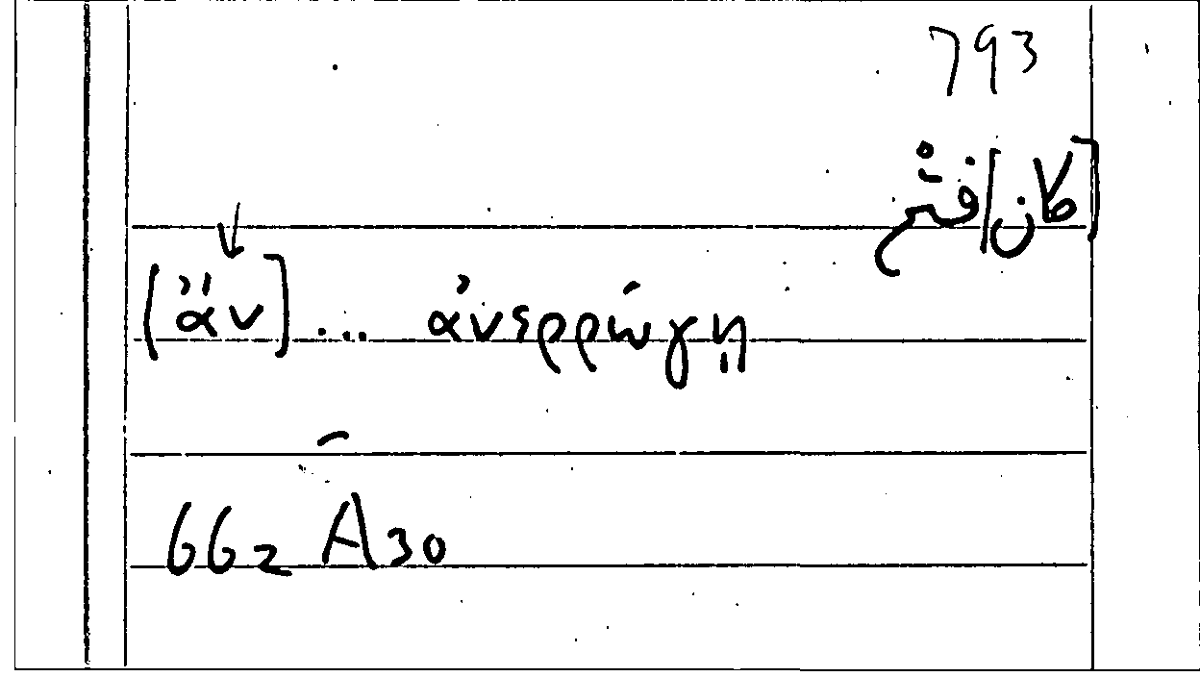 793
[كان/فتح
(ἄν] ... ἀνερρώγῃ
662 A 30